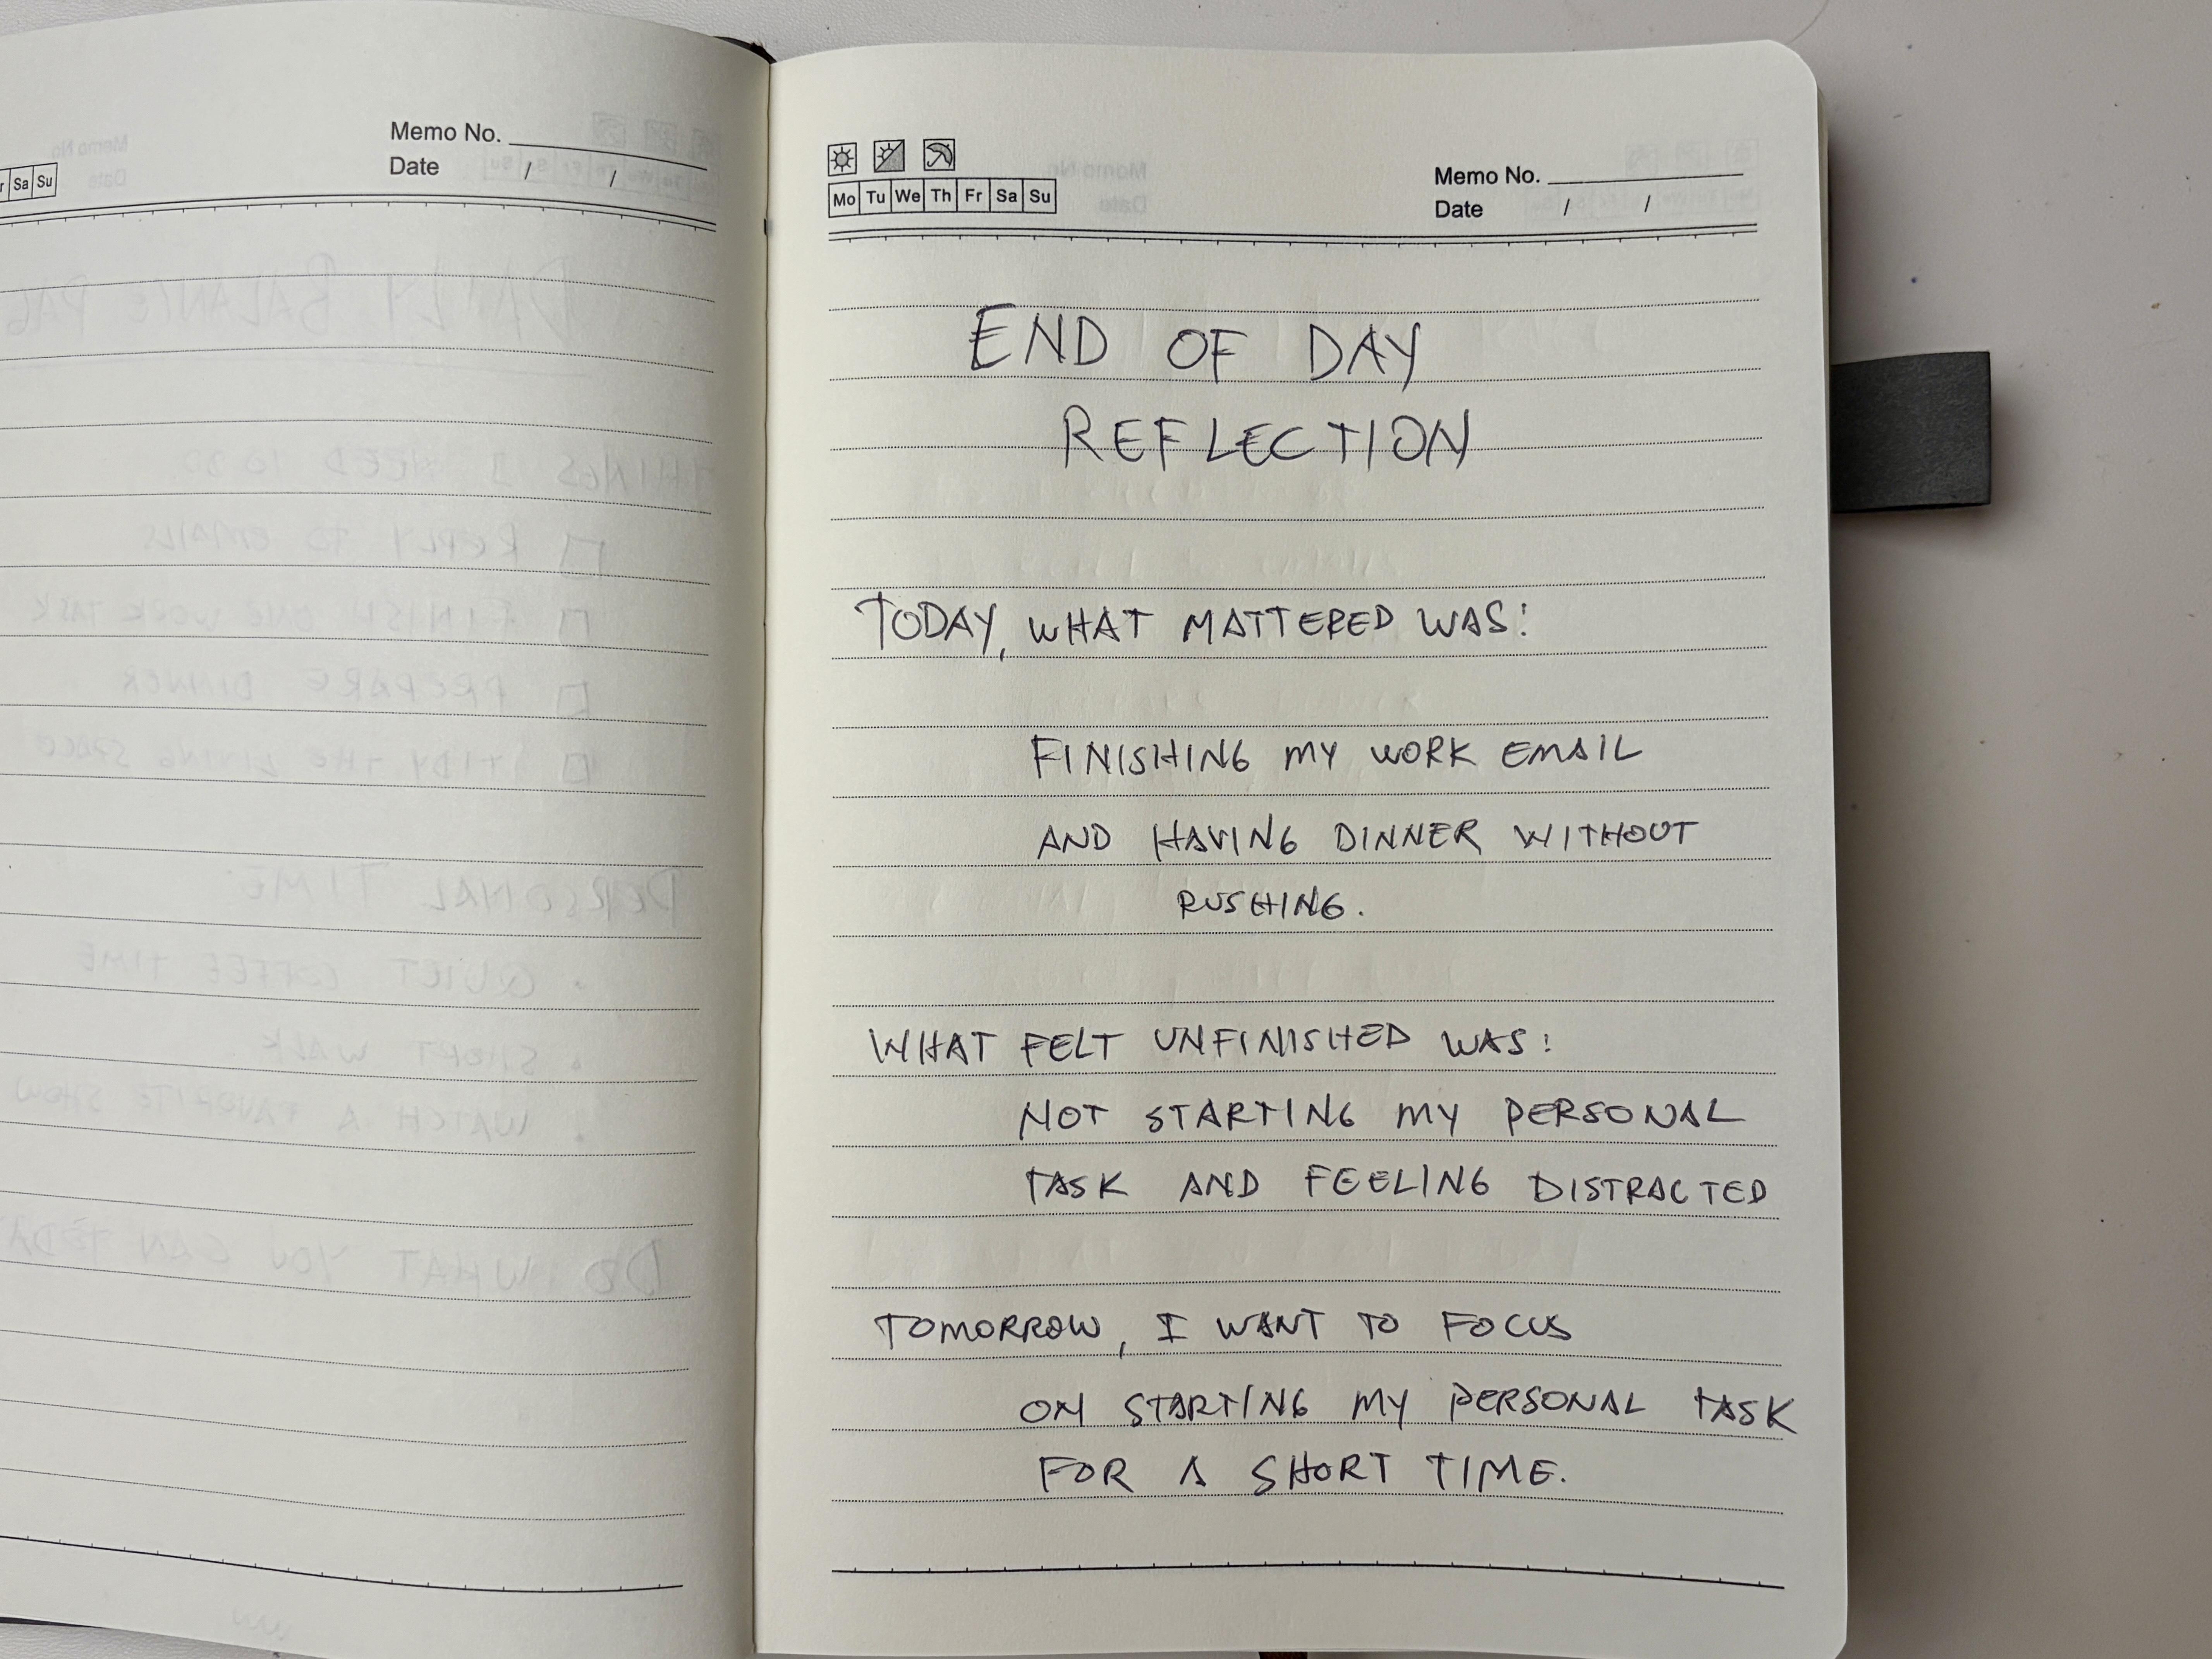 r Sa Su
Memo No.
Date / /
Mo Tu We Th Fr Sa Su
Memo No.
Date / /
END OF DAY
REFLECTION
TODAY, WHAT MATTERED WAS:
FINISHING MY WORK EMAIL
AND HAVING DINNER WITHOUT
RUSHING.
WHAT FELT UNFINISHED WAS:
NOT STARTING MY PERSONAL
TASK AND FEELING DISTRACTED
TOMORROW, I WANT TO FOCUS
ON STARTING MY PERSONAL TASK
FOR A SHORT TIME.